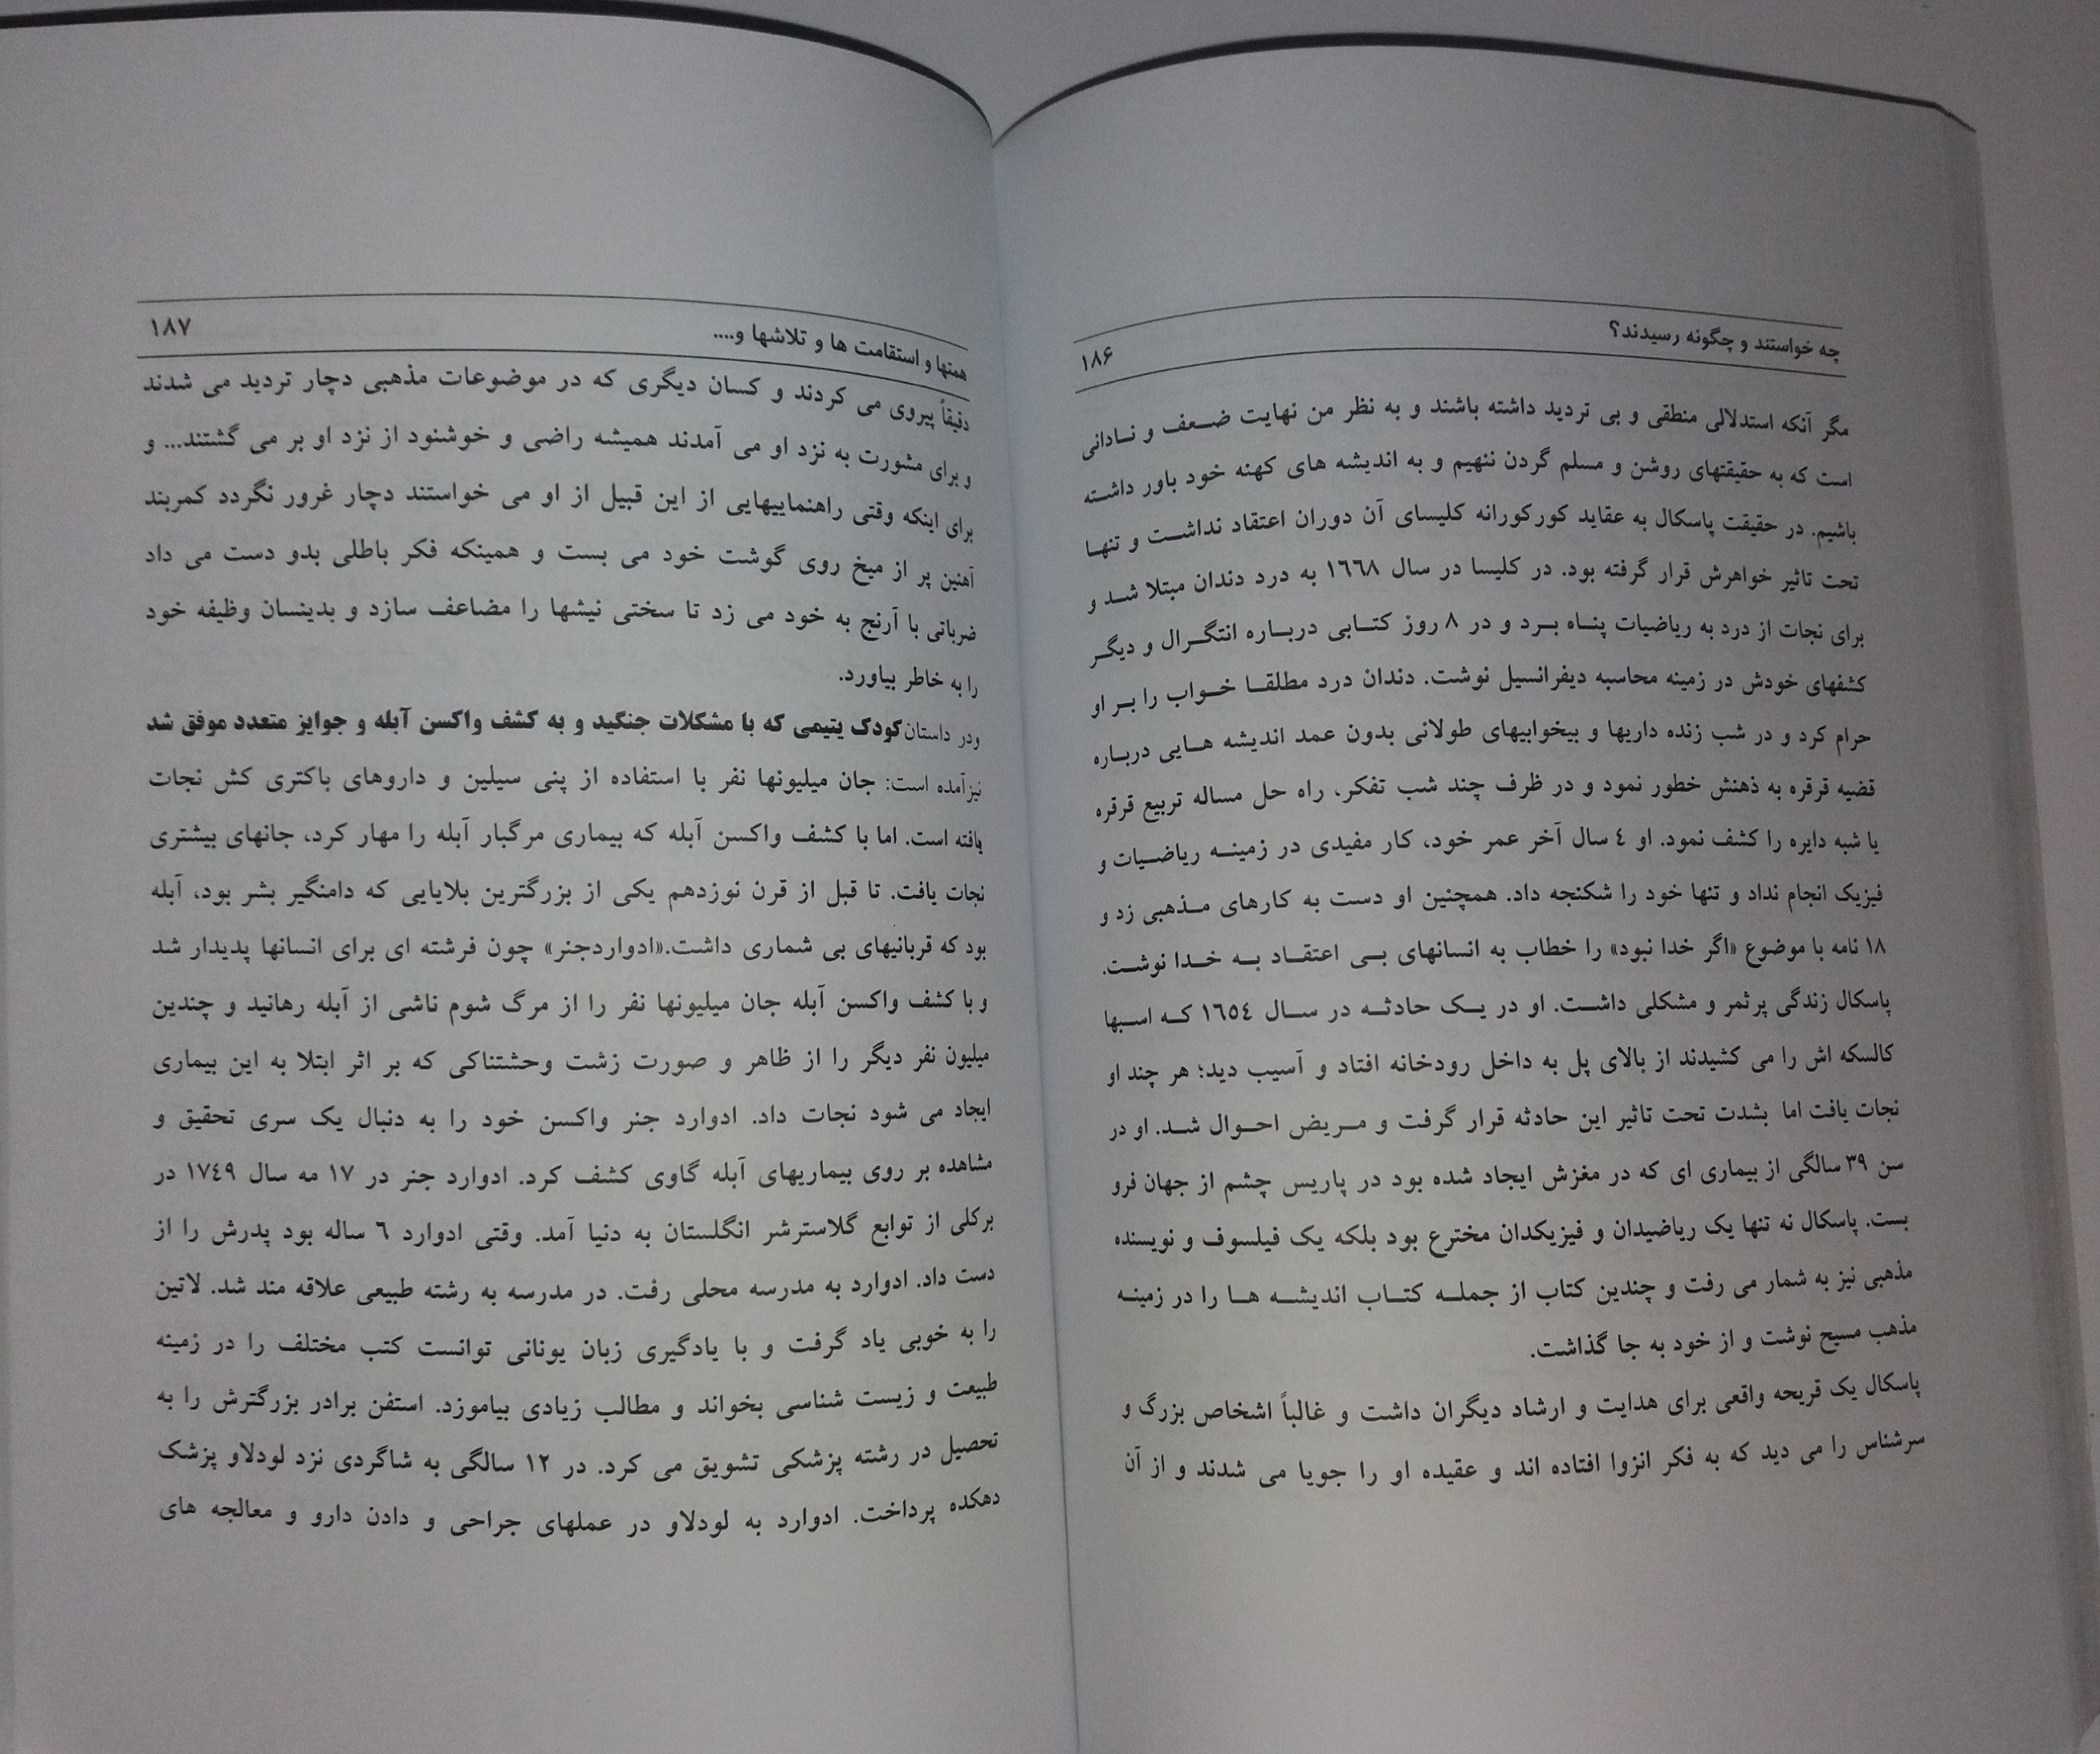 چه خواستند و چگونه رسیدند؟ ۱۸۶
مگر آنکه استدلالی منطقی و بی تردید داشته باشند و به نظر من نهایت ضعف و نادانی
است که به حقیقتهای روشن و مسلم گردن ننهیم و به اندیشه های کهنه خود باور داشته
باشیم. در حقیقت پاسکال به عقاید کورکورانه کلیسای آن دوران اعتقاد نداشت و تنها
تحت تاثیر خواهرش قرار گرفته بود. در کلیسا در سال ۱٦٦۸ به درد دندان مبتلا شد و
برای نجات از درد به ریاضیات پناه برد و در ۸ روز کتابی درباره انتگرال و دیگر
کشفهای خودش در زمینه محاسبه دیفرانسیل نوشت. دندان درد مطلقا خواب را بر او
حرام کرد و در شب زنده داریها و بیخوابیهای طولانی بدون عمد اندیشه هایی درباره
قضیه قرقره به ذهنش خطور نمود و در ظرف چند شب تفکر، راه حل مساله تربیع قرقره
یا شبه دایره را کشف نمود. او ٤ سال آخر عمر خود، کار مفیدی در زمینه ریاضیات و
فیزیک انجام نداد و تنها خود را شکنجه داد. همچنین او دست به کارهای مذهبی زد و
۱۸ نامه با موضوع «اگر خدا نبود» را خطاب به انسانهای بی اعتقاد به خدا نوشت.
پاسکال زندگی پرثمر و مشکلی داشت. او در یک حادثه در سال ۱٦٥٤ که اسبها
کالسکه اش را می کشیدند از بالای پل به داخل رودخانه افتاد و آسیب دید؛ هر چند او
نجات یافت اما بشدت تحت تاثیر این حادثه قرار گرفت و مریض احوال شد. او در
سن ۳۹ سالگی از بیماری ای که در مغزش ایجاد شده بود در پاریس چشم از جهان فرو
بست. پاسکال نه تنها یک ریاضیدان و فیزیکدان مخترع بود بلکه یک فیلسوف و نویسنده
مذهبی نیز به شمار می رفت و چندین کتاب از جمله کتاب اندیشه ها را در زمینه
مذهب مسیح نوشت و از خود به جا گذاشت.
پاسکال یک قریحه واقعی برای هدایت و ارشاد دیگران داشت و غالباً اشخاص بزرگ و
سرشناس را می دید که به فکر انزوا افتاده اند و عقیده او را جویا می شدند و از آن
همتها و استقامت ها و تلاشها و.... ۱۸۷
دقیقاً پیروی می کردند و کسان دیگری که در موضوعات مذهبی دچار تردید می شدند
و برای مشورت به نزد او می آمدند همیشه راضی و خوشنود از نزد او بر می گشتند... و
برای اینکه وقتی راهنماییهایی از این قبیل از او می خواستند دچار غرور نگردد کمربند
آهنین پر از میخ روی گوشت خود می بست و همینکه فکر باطلی بدو دست می داد
ضرباتی با آرنج به خود می زد تا سختی نیشها را مضاعف سازد و بدینسان وظیفه خود
را به خاطر بیاورد.
ودر داستان کودک یتیمی که با مشکلات جنگید و به کشف واکسن آبله و جوایز متعدد موفق شد
نیزآمده است: جان میلیونها نفر با استفاده از پنی سیلین و داروهای باکتری کش نجات
یافته است. اما با کشف واکسن آبله که بیماری مرگبار آبله را مهار کرد، جانهای بیشتری
نجات یافت. تا قبل از قرن نوزدهم یکی از بزرگترین بلایایی که دامنگیر بشر بود، آبله
بود که قربانیهای بی شماری داشت.«ادواردجنر» چون فرشته ای برای انسانها پدیدار شد
و با کشف واکسن آبله جان میلیونها نفر را از مرگ شوم ناشی از آبله رهانید و چندین
میلیون نفر دیگر را از ظاهر و صورت زشت وحشتناکی که بر اثر ابتلا به این بیماری
ایجاد می شود نجات داد. ادوارد جنر واکسن خود را به دنبال یک سری تحقیق و
مشاهده بر روی بیماریهای آبله گاوی کشف کرد. ادوارد جنر در ۱۷ مه سال ۱۷٤۹ در
برکلی از توابع گلاسترشر انگلستان به دنیا آمد. وقتی ادوارد ٦ ساله بود پدرش را از
دست داد. ادوارد به مدرسه محلی رفت. در مدرسه به رشته طبیعی علاقه مند شد. لاتین
را به خوبی یاد گرفت و با یادگیری زبان یونانی توانست کتب مختلف را در زمینه
طبیعت و زیست شناسی بخواند و مطالب زیادی بیاموزد. استفن برادر بزرگترش را به
تحصیل در رشته پزشکی تشویق می کرد. در ۱۲ سالگی به شاگردی نزد لودلاو پزشک
دهکده پرداخت. ادوارد به لودلاو در عملهای جراحی و دادن دارو و معالجه های